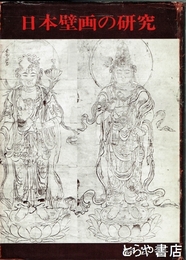 日本壁画の研究
とらや書店